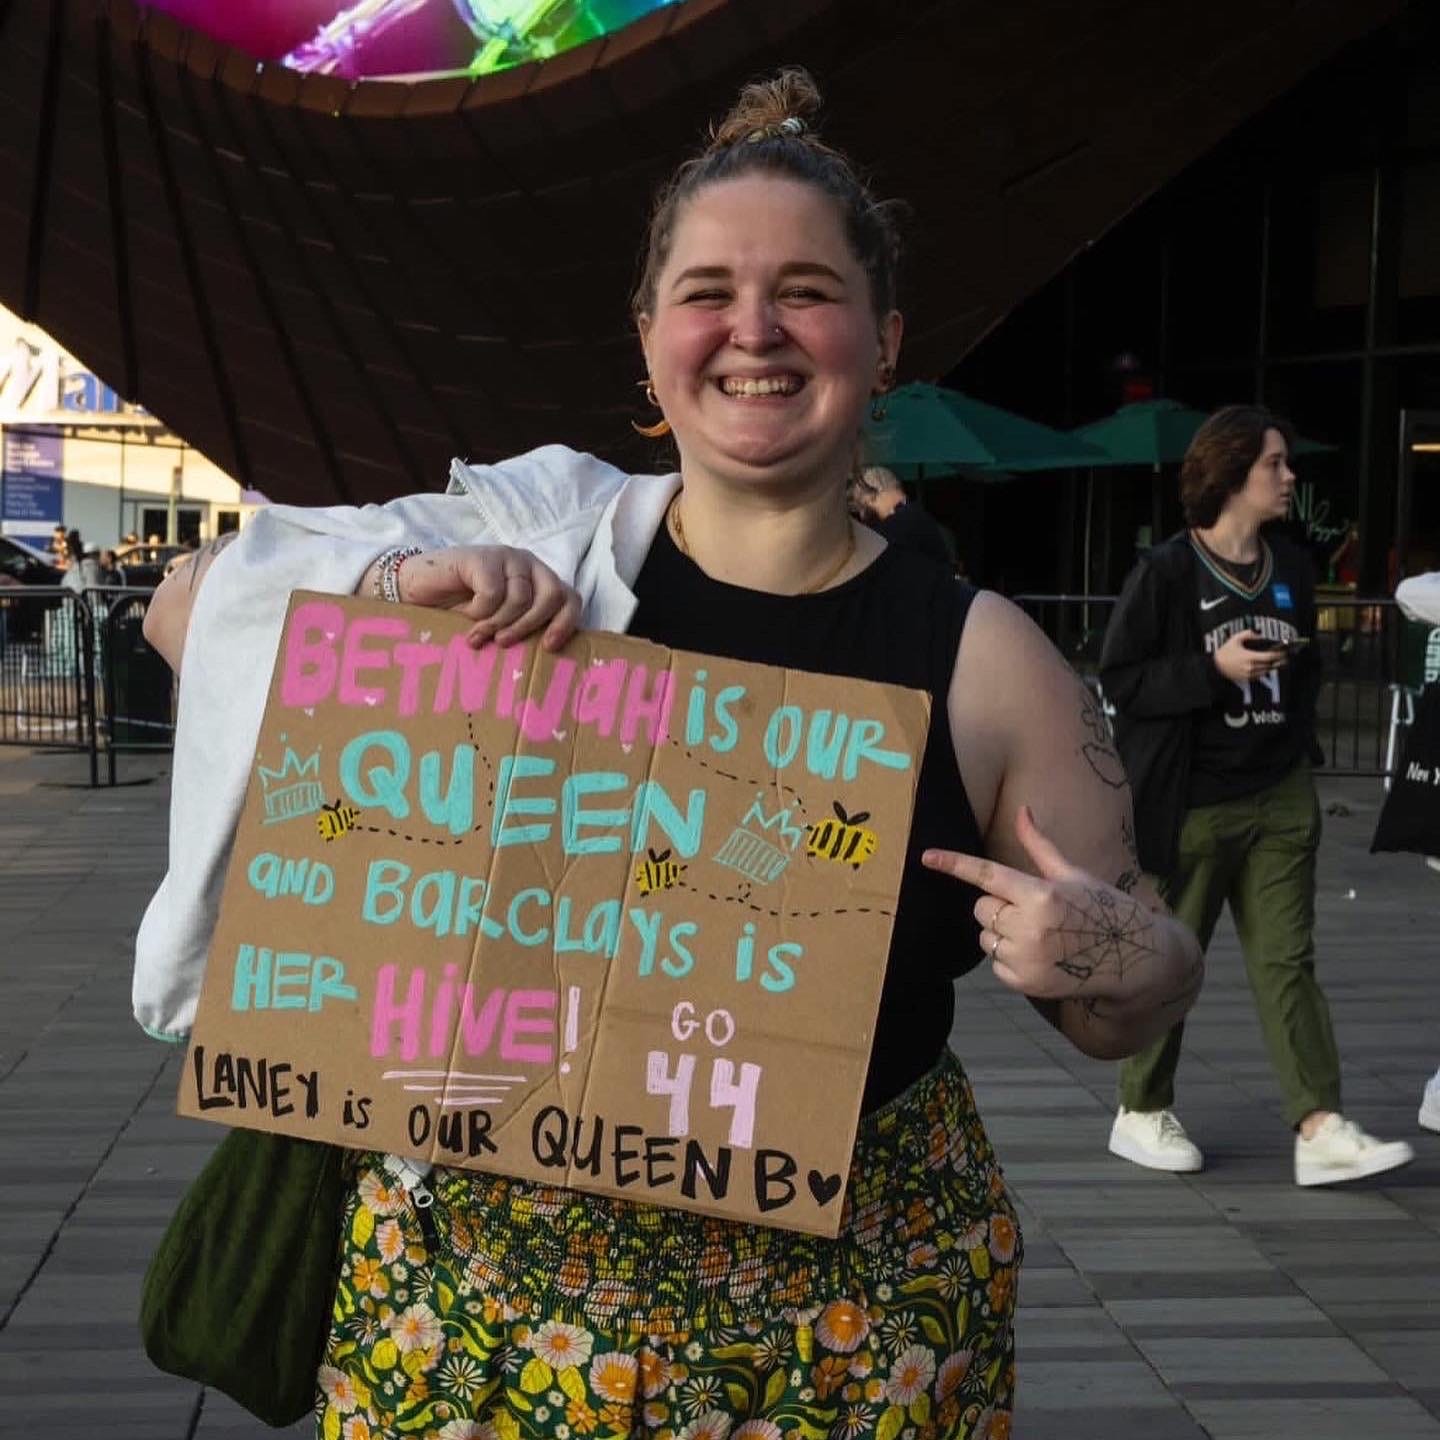 BETNIJAH is OUR
QUEEN
AND BARCLAYS is
HER HIVE!
GO
44
LANEY is OUR QUEEN B
NEW YORK
44
Webull
New Y